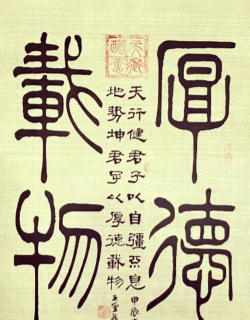 厚德
載物
天行健君子以自彊不息
地勢坤君子以厚德載物